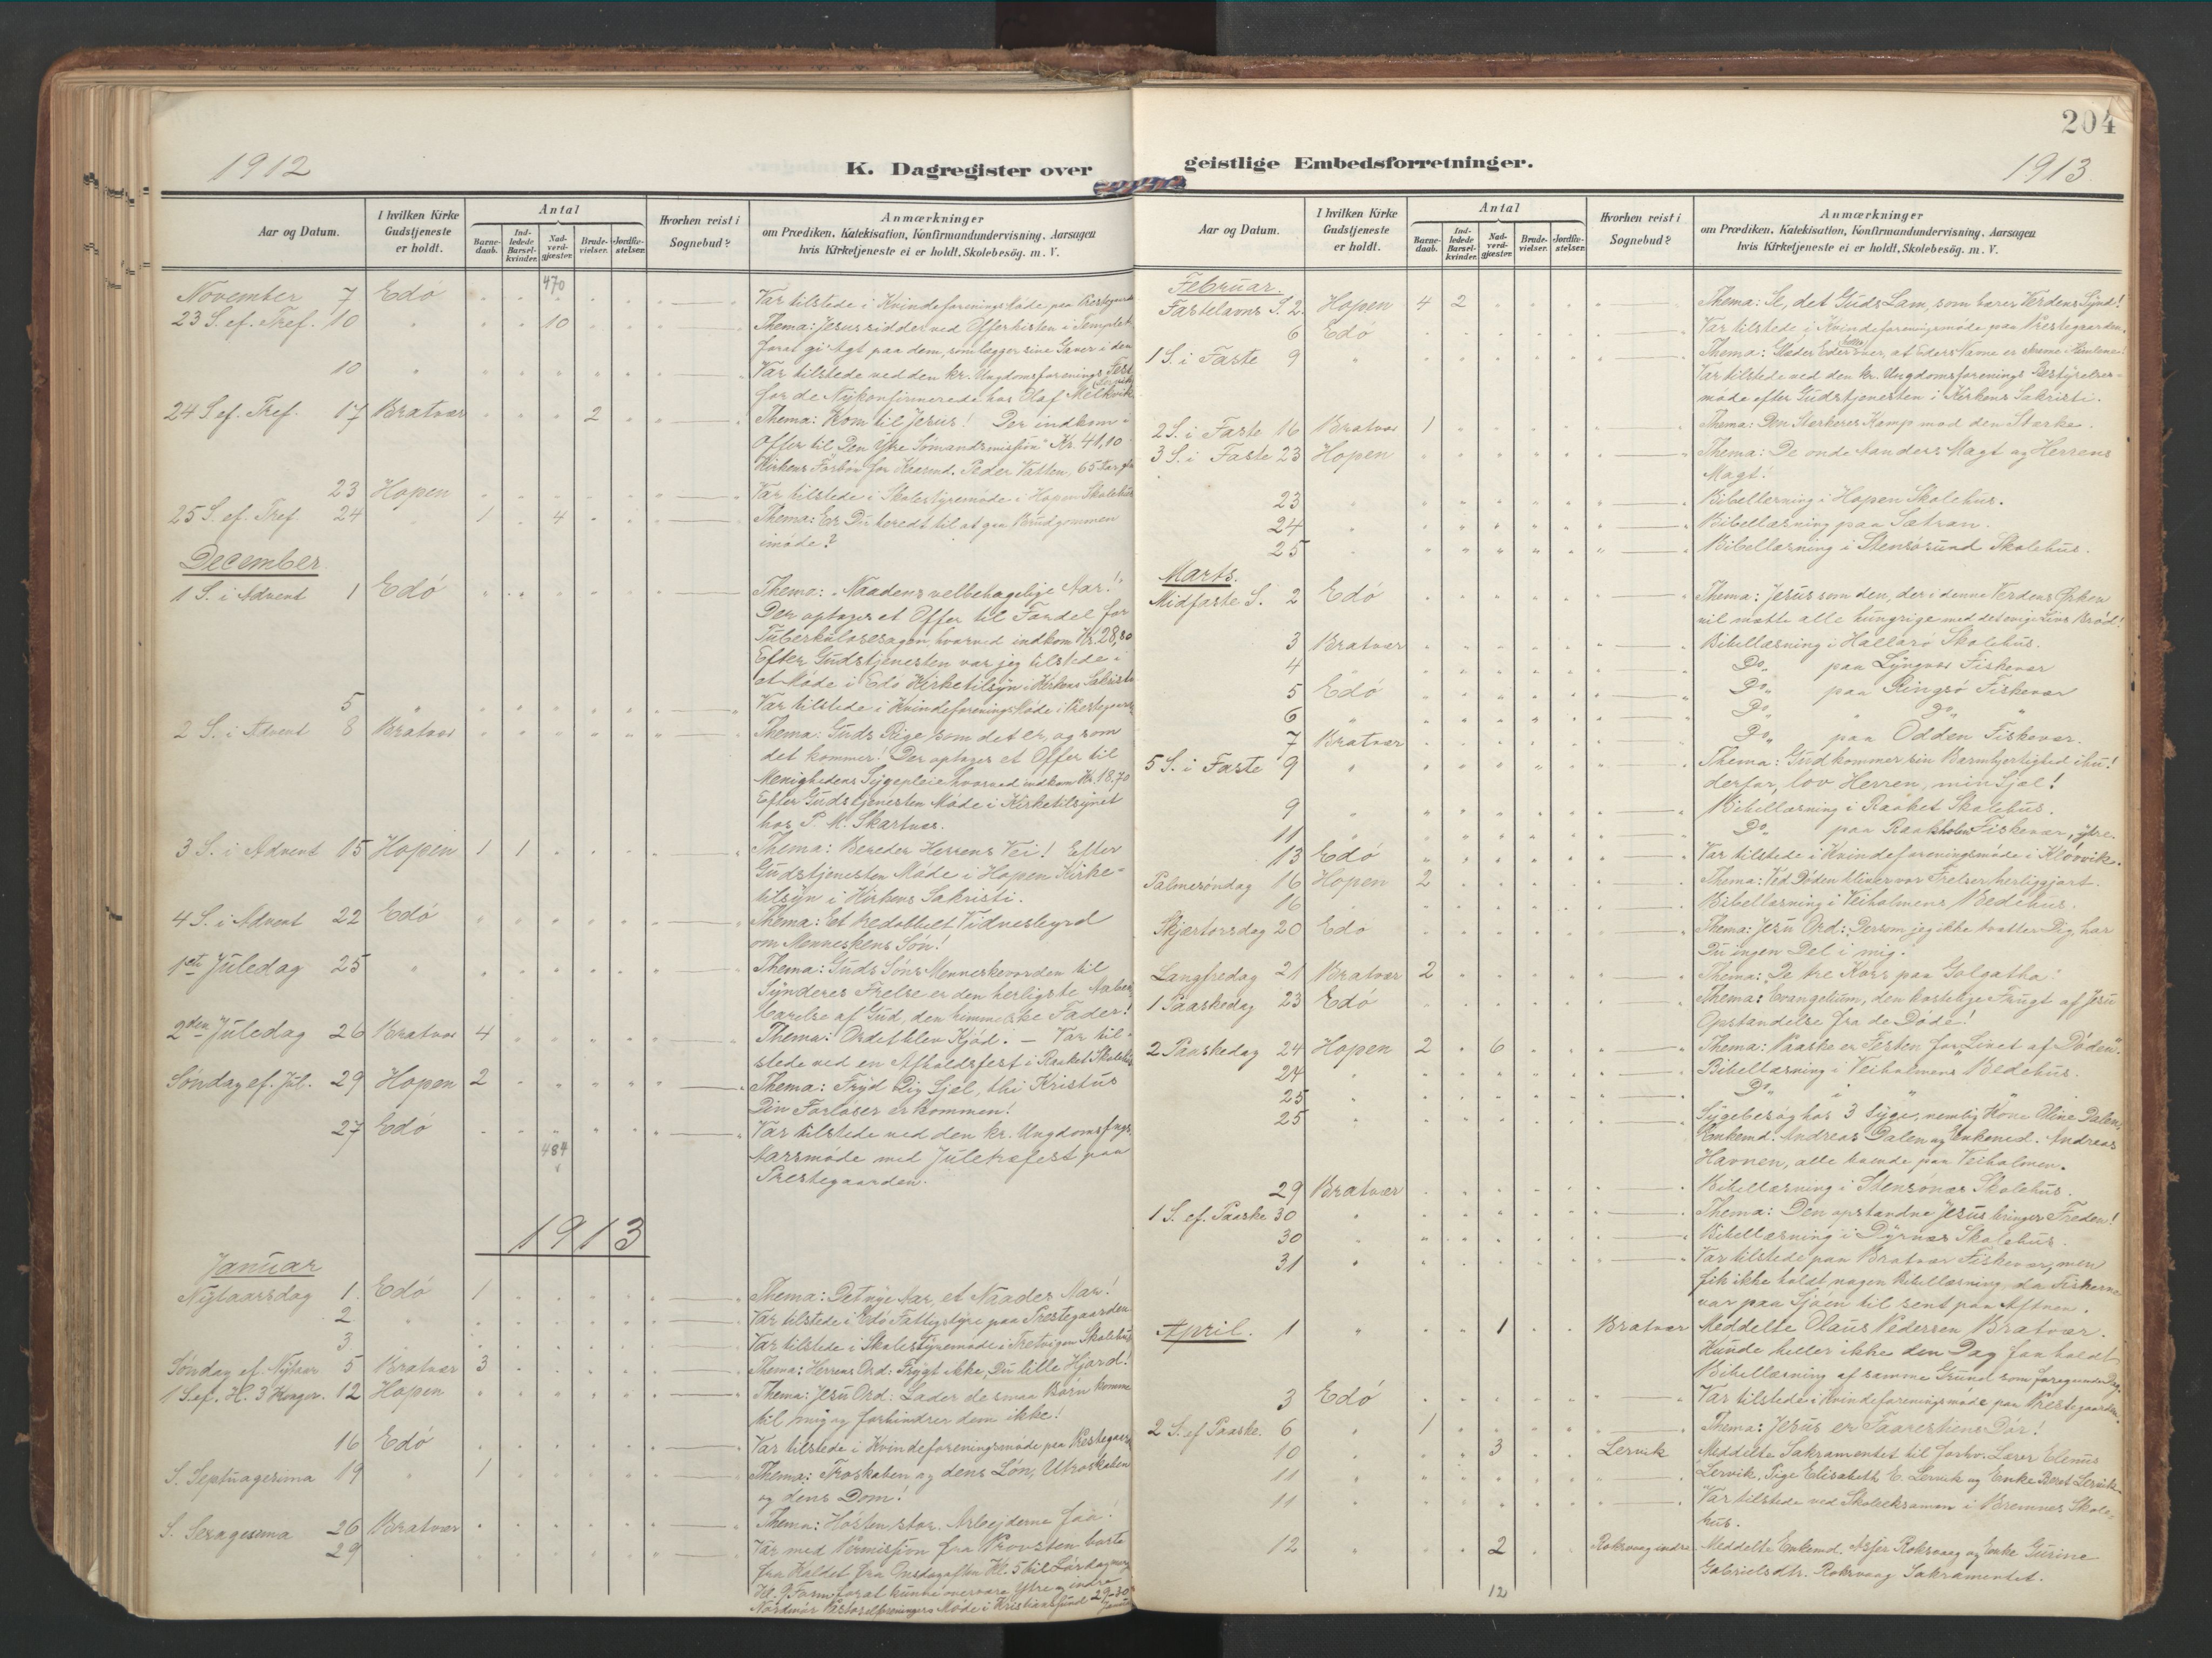 204
1912
K. Dagregister over
geistlige Embedsforretninger.
1913
Aar og Datum.
I hvilken Kirke Gudstjeneste er holdt.
Antal
Barnedaab.
Indledede Barselkvinder.
Nadverdgjæster.
Brudevielser.
Jordfæstelser.
Hvorhen reist i Sognebud?
Anmærkninger
om Prædiken, Katekisation, Konfirmandundervisning, Aarsagen
hvis Kirketjeneste ei er holdt, Skolebesög. m. V.
470
November 7 Edö Var tilstede i Kvindeforeningsmöde paa Prestegaarden
23 S. ef. Tref. 10 " 10 Thema: Jesus sidder ved Offerkisten i Templet
forat gi Agt paa dem, som lægger sine Gaver i den
10 " Var tilstede ved den kr. Ungdomsforenings Fest
for de Nykonfirmerede hos Olaf Melkvik
24 S. ef. Tref. 17 Bratvær 2 Thema: Kom til Jesus! Der indkom i
Offer til Den ydre Sömandsmission Kr. 41,10
Kirkens Forbön for Kaarmd. Peder Vatten, 65 Aar gl.
23 Hopen Var tilstede i Skolestyremöde i Hopen Skolehus
25 S. ef. Tref. 24 " 1 4 Thema: Er Du beredt til at gaa Brudgommen
imöde?
December
1 S. i Advent 1 Edö Thema: Naadens velbehagelige Aar!
Der optoges et Offer til Fordel for
Tuberkulosesagen, hvorved indkom Kr. 28,80
Efter Gudstjenesten var jeg tilstede i
et Möde i Edö Kirketilsyn i Kirkens Sakristi
5 " Var tilstede i Kvindeforenings Möde i Prestegaarden
2 S. i Advent 8 Bratvær Thema: Guds Rige, som det er, og som
det kommer! Der optoges et Offer til
Menighedens Sygepleie hvorved indkom Kr. 18.70
Efter Gudstjenesten Möde i Kirketilsynet
hos P. M. Skartvær.
3 S. i Advent 15 Hopen 1 1 Thema: Bereder Herrens Vei! Efter
Gudstjenesten Möde i Hopen Kirke-
tilsyn i Kirkens Sakristi.
4 S. i Advent 22 Edö Thema: Et tredobbelt Vidnesbyrd
om Menneskens Sön!
1ste Juledag 25 " Thema: Guds Söns Menneskevorden til
Synderes Frelse er den herligste Aaben-
barelse af Gud, den himmelske Fader!
2den Juledag 26 Bratvær 4 Thema: Ordet blev Kjöd. — Var til-
stede ved en Afholdsfest i Raaket Skolehus
Söndag ef. Jul. 29 Hopen 2 Thema: Fryd Dig Sjæl, thi Kristus
Din Forlöser er kommen!
27 Edö Var tilstede ved den kr. Ungdomsfngs.
Aarsmöde med Juletræfest paa
Prestegaarden.
484
1913
Januar
Nytaarsdag 1. Edö 1 Thema: Det nye Aar, et Naades Aar!
2 " Var tilstede i Edö Fattigstyre paa Prestegaarden
3 " Var tilstede i Skolestyremöde i Skolehus
Söndag ef. Nytaar 5 Bratvær 3 Thema: Herrens Ord: Frygt ikke, Du lille Hjord!
1 S. ef. H. 3 Konger. 12 Hopen Thema: Jesu Ord: Lader de smaa Börn komme
til mig og forhindrer dem ikke!
16 Edö Var tilstede i Kvindeforeningsmöde paa Prestegaarden
S. Septuagesima 19 " 1 Thema: Troskaben og dens Lön, Utroskaben
og dens Dom!
S. Sexagesima 26 Bratvær Thema: Hösten stor. Arbejderne faa!
29 Var med Permission fra Provsten borte
fra Kaldet fra Onsdagaften Kl. 5 til Lördagmorg.
Kl. 9 Form. forat kunne overvære Ytre og indre
Nordmör Pastoralforenings Möde i Kristiansund 29-30 Januar
Februar.
Fastelavns S. 2. Hopen 4 2 Thema: Se, det Guds Lam, som bærer Verdens Synd!
6 Edö Var tilstede i Kvindeforeningsmöde paa Prestegaarden.
1 S. i Faste 9 " Thema: Glæder Eder over, at Eders Navne er skrevne i Himlene!
Var tilstede ved den kr. Ungdomsforenings Bestyrelses-
möde efter Gudstjenesten i Kirkens Sakristi.
2 S. i Faste 16 Bratvær 1 Thema: Den Stærkeres Kamp mod den Stærke.
3 S. i Faste 23 Hopen Thema: De onde Aanders Magt og Herrens
Magt!
23 Bibellæsning i Hopen Skolehus.
24 " Bibellæsning paa Sætran.
25 " Bibellæsning i Stensösund Skolehus.
Marts.
Midfaste S. 2 Edö Thema: Jesus som den, der i denne Verdens Örken
vil mætte alle hungrige med det evige Livs Bröd!
3 Bratvær Bibellæsning i Hallarö Skolehus.
4 " Do. paa Lyngvær Fiskevær
5 Edö Do. paa Ringsö Fiskevær
6 " Do. " Do. "
7 Bratvær Do. paa Odden Fiskevær.
5 S. i Faste 9 " Thema: Gud kommer sin Barmhjertighed ihu!
derfor, lov Herren, min Sjæl!
9 Bibellæsning i Raaket Skolehus.
11 " Do. paa Raaksholen Fiskevær, ytre.
13 Edö Var tilstede i Kvindeforeningsmöde i Klövvik.
Palmesöndag 16 Hopen 2 Thema: Ved Döden bliver vor Frelser herliggjort.
16 " Bibellæsning i Veiholmens Bedehus.
Skjærtorsdag 20 Edö Thema: Jesu Ord: Dersom jeg ikke tvætter Dig, har
Du ingen Del i mig.
Langfredag 21 Bratvær 2 Thema: De tre Kors paa Golgatha!
1 Paaskedag 23 Edö Thema: Evangelium, den kostelige Frugt af Jesu
Opstandelse fra de Döde!
2 Paaskedag 24 Hopen 2 6 Thema: Paaske er Festen for "Livet af Döden".
24 " Bibellæsning i Veiholmens Bedehus.
25 " Do. i " "
25 " Sygebesög hos 3 Syge, nemlig Kone Oline Dalen,
Enkemd. Andreas Dalen og Enkemd. Andreas
Havnen, alle boende paa Veiholmen.
29 Bratvær Bibellæsning i Stensönæs Skolehus.
1 S. ef. Paaske 30 " Thema: Den opstandne Jesus bringer Freden!
30 " Bibellæsning i Dyrnæs Skolehus.
31 " Var tilstede paa Bratvær Fiskevær, men
fik ikke holdt nogen Bibellæsning, da Fiskerne
var paa Sjöen til sent paa Aftnen.
April. 1 " 1 Bratvær Meddelte Olaus Pedersen Bratvær.
Kunde heller ikke den Dag faa holdt
Bibellæsning af samme Grund som foregaaende Dag.
3 Edö Var tilstede i Kvindeforeningsmöde paa Prestegaarden.
2 S. ef Paaske. 6 " 1 Thema: Jesus er Faarestiens Dör!
10 " 3 Lervik Meddelte Sakramentet til Forhv. Lærer Elenus
11 " Lervik, Pige Elisabeth E. Lervik og Enke Beret Lervik
11 " Var tilstede ved Skoleeksamen i Bremnes Skole-
hus.
12 " 2 Roksvaag indre Meddelte Enkemd. Asfer Roksvaag og Enke Gurine
Gabrielsdtr. Roksvaag Sakramentet.
12